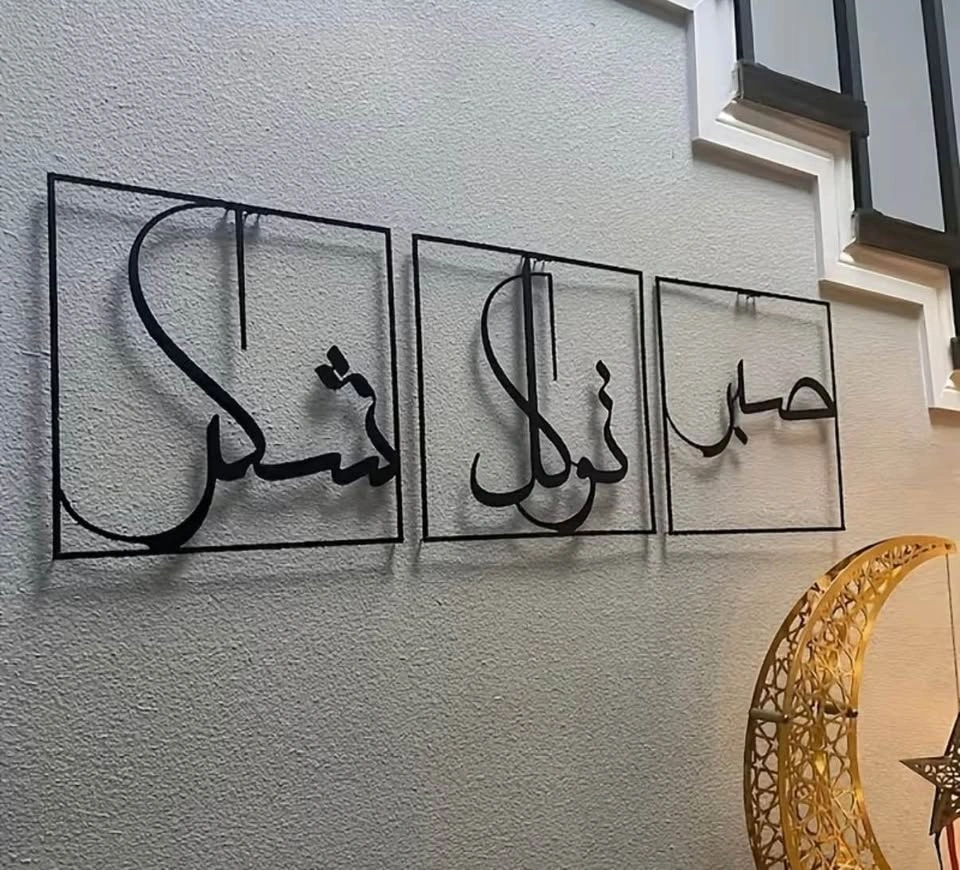 صبر
توكل
شكر